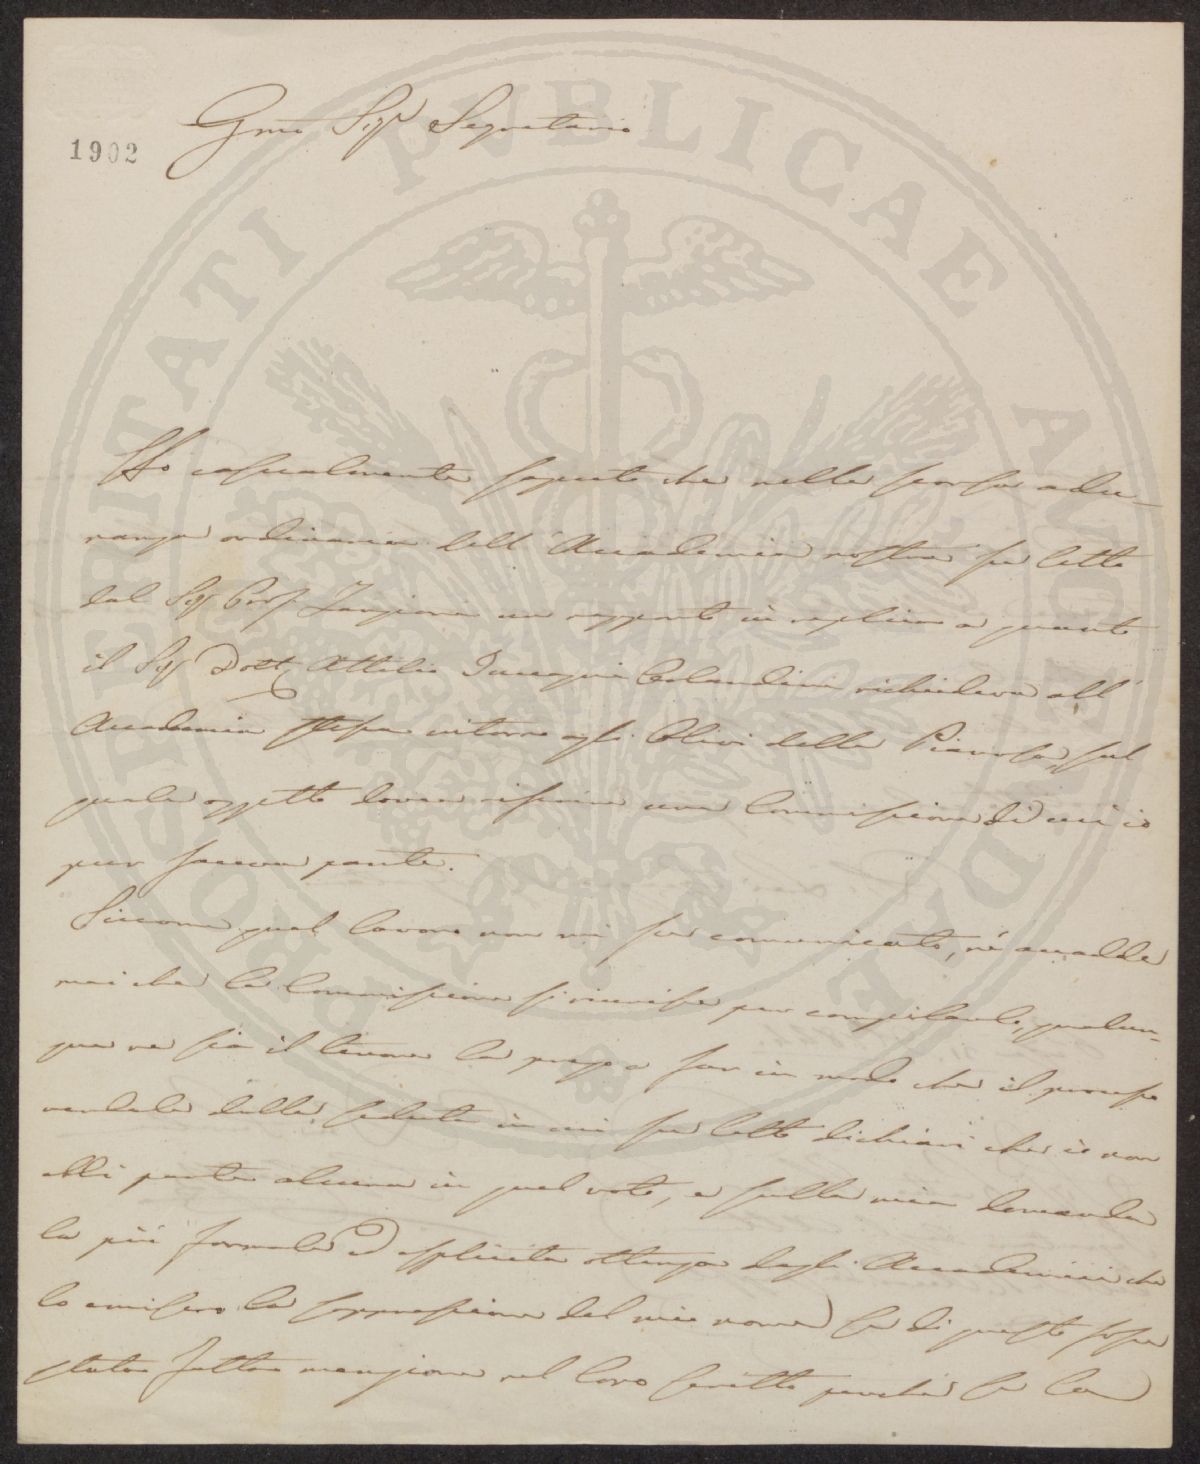 PROSPERITATI PVBLICAE AVGENDAE
1902
Gmo Sigr Segretario
Ho casualmente saputo che nella scorsa adu-
nanza ordinaria dell' Accademia nostra fu letto
dal Sigr Prof. Targioni un rapporto in replica a quanto
il Sigr Dott. Attilio Calandini richiedeva all'
Accademia stessa intorno agli Olivi della Pianosa, sul
quale oggetto dovea riferire una Commissione di cui io
pur faceva parte.
Siccome quel lavoro non mi fu comunicato, né accadde
mai che la Commissione si riunisse per compilarlo, qualun-
que ne sia il tenore la prego a far in modo che il processo
verbale della seduta in cui fu letto dichiari che io non
ebbi parte alcuna in quel voto, e sulla mia domanda
la più formale ed esplicita ottenga dagli Accademici che
lo emisero la soppressione del mio nome se di questo fosse
stata fatta menzione nel loro scritto perché se la